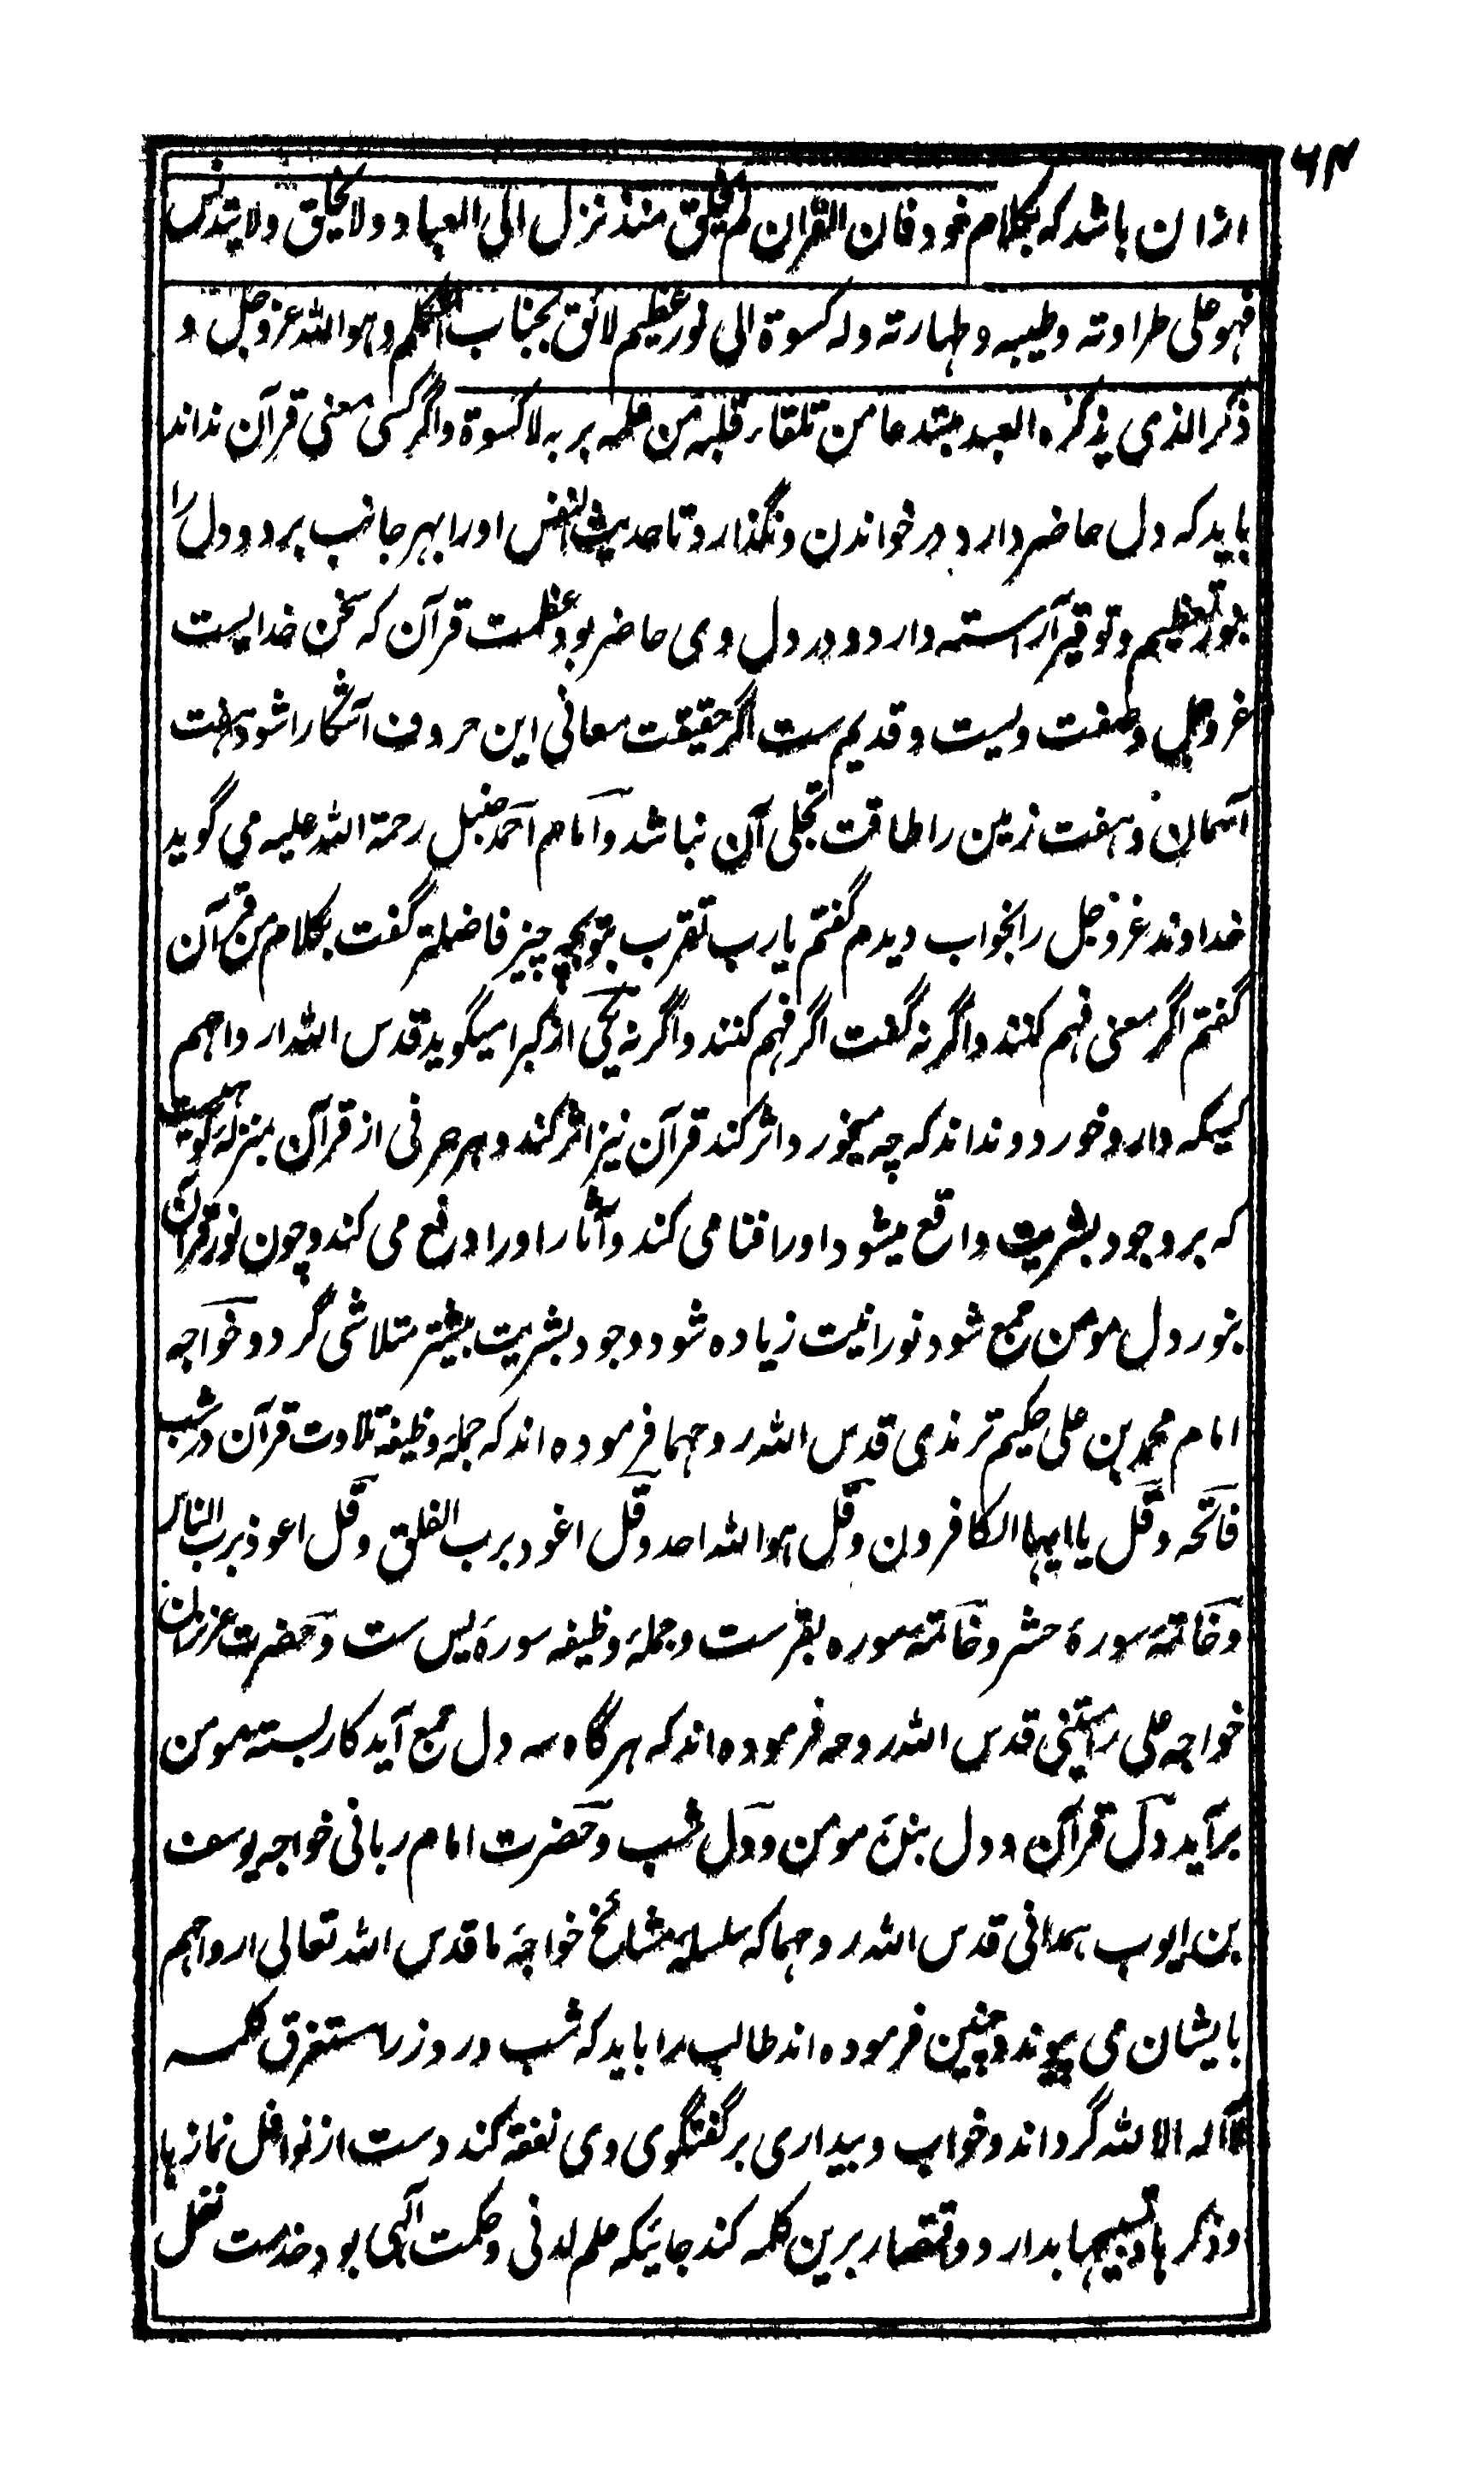 ۶۴
ازان باشد که بکلام خود فان القرآن لم یخلق منذ نزل الی العباد ولا یخلق ولا یتدنس
فهو علی طراوته وطیبه وطهارته وله کسوة الی نور عظیم لائق بجناب المتکلم وهو الله عزوجل و
ذکر الذی یذکره العبد مبتدعا من تلقاء قلبه من علمه بربه لا کسوة واگر کسی معنی قرآن نداند
باید که دل حاضر دارد در خواندن ونگذارد تا حدیث النفس او را بهر جانب برد ودل را
بنور تعظیم وتوقیر آراسته دارد ودر دل وی حاضر بود عظمت قرآن که سخن خدایست
عزوجل وصفت ویست وقدیم ست اگر حقیقت معانی این حروف آشکارا شود هفت
آسمان وهفت زمین را طاقت تجلی آن نباشد وامام احمد حنبل رحمة الله علیه می گوید
خداوند عزوجل را بخواب دیدم گفتم یا رب تقرب بتو بچه چیز فاضلتر گفت بکلام من قرآن
گفتم اگر معنی فهم کنند واگر نه گفت اگر فهم کنند واگر نه یکی از کبرا میگوید قدس الله ارواحهم
کسیکه دارو خورد ونداند که چه میخورد اثر کند قرآن نیز اثر کند وهر حرفی از قرآن بمنزلۀ کوهیست
که بر وجود بشریت واقع میشود او را فنا می کند وآثار او را رفع می کند وچون نور قرآن
بنور دل مومن جمع شود نورانیت زیاده شود وجود بشریت بیشتر متلاشی گردد وخواجه
امام محمد بن علی حکیم ترمذی قدس الله روحهما فرموده اند که جملۀ وظیفه تلاوت قرآن در شب
فاتحه وقل یا ایها الکافرون وقل هو الله احد وقل اعوذ برب الفلق وقل اعوذ برب الناس
وخاتمۀ سورۀ حشر وخاتمۀ سوره بقر ست وجملۀ وظیفه سورۀ یس ست وحضرت عزیزان
خواجه علی رامیتنی قدس الله روحه فرموده اند که هرگاه سه دل جمع آید کار بسته مومن
برآید دل قرآن ودل بندۀ مومن ودل شب وحضرت امام ربانی خواجه یوسف
بن ایوب همدانی قدس الله روحهما که سلسلۀ مشائخ خواجۀ ما قدس الله تعالی ارواحهم
بایشان می پیوندد چنین فرموده اند طالب را باید که شب در روز مستغرق کلمه
لا اله الا الله گرداند وخواب وبیداری بر گفتگوی وی نفقه کند دست از نوافل نمازها
وذکرها وتسبیحها بدارد واقتصار برین کلمه کند جائیکه علم لدنی وحکمت الهی بود خدمت نفل